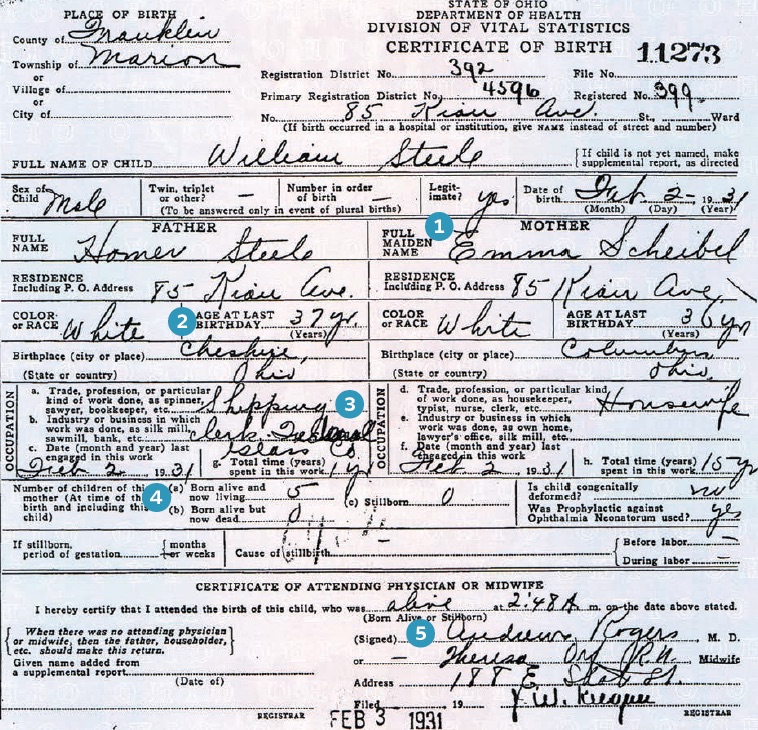 PLACE OF BIRTH
County of Franklin
Township of Marion
or
Village of
or
City of
STATE OF OHIO
DEPARTMENT OF HEALTH
DIVISION OF VITAL STATISTICS
CERTIFICATE OF BIRTH 11273
Registration District No. 392 File No.
Primary Registration District No. 4596 Registered No. 399
No. 85 Kian Ave. St., Ward
(If birth occurred in a hospital or institution, give NAME instead of street and number)
FULL NAME OF CHILD William Steele
{If child is not yet named, make
supplemental report, as directed
Sex of Child Male
Twin, triplet or other? —
Number in order of birth —
(To be answered only in event of plural births)
Legitimate? yes
Date of birth Feb. 2 - 1931
(Month) (Day) (Year)
FATHER
FULL NAME Homer Steele
1
MOTHER
FULL MAIDEN NAME Emma Scheibel
RESIDENCE
Including P. O. Address 85 Kian Ave.
RESIDENCE
Including P. O. Address 85 Kian Ave,
COLOR OR RACE White
2
AGE AT LAST BIRTHDAY 37 yr.
(Years)
COLOR OR RACE White
AGE AT LAST BIRTHDAY 36 yr
(Years)
Birthplace (city or place) Cheshire,
(State or country) Ohio
Birthplace (city or place) Columbus
(State or country) Ohio.
OCCUPATION
a. Trade, profession, or particular
kind of work done, as spinner,
sawyer, bookkeeper, etc. Shipping
3
b. Industry or business in which
work was done, as silk mill,
sawmill, bank, etc. clerk.
Glass Co
c. Date (month and year) last
engaged in this work
Feb 2, 1931
g. Total time (years)
spent in this work 1 yr
OCCUPATION
d. Trade, profession, or particular kind
of work done, as housekeeper,
typist, nurse, clerk, etc. Housewife
e. Industry or business in which
work was done, as own home,
lawyer's office, silk mill, etc.
f. Date (month and year) last
engaged in this work
Feb 2, 1931
h. Total time (years)
spent in this work 15 yr
Number of children of this
mother (At time of this
birth and including this
child)
4
(a) Born alive and
now living 5
(b) Born alive but
now dead 0
(c) Stillborn 0
Is child congenitally
deformed? no
Was Prophylactic against
Ophthalmia Neonatorum used? yes
If stillborn,
period of gestation {months
or weeks
Cause of stillbirth —
{Before labor —
During labor —
CERTIFICATE OF ATTENDING PHYSICIAN OR MIDWIFE
I hereby certify that I attended the birth of this child, who was alive at 2:48 A m. on the date above stated.
(Born Alive or Stillborn)
{When there was no attending physician
or midwife, then the father, householder,
etc. should make this return.}
Given name added from
a supplemental report
(Date of)
REGISTRAR
5
(Signed) Andrews Rogers M. D.
or — Theresa R.N. Midwife
Address 188 E State St.
Filed 19
FEB 3 1931
REGISTRAR